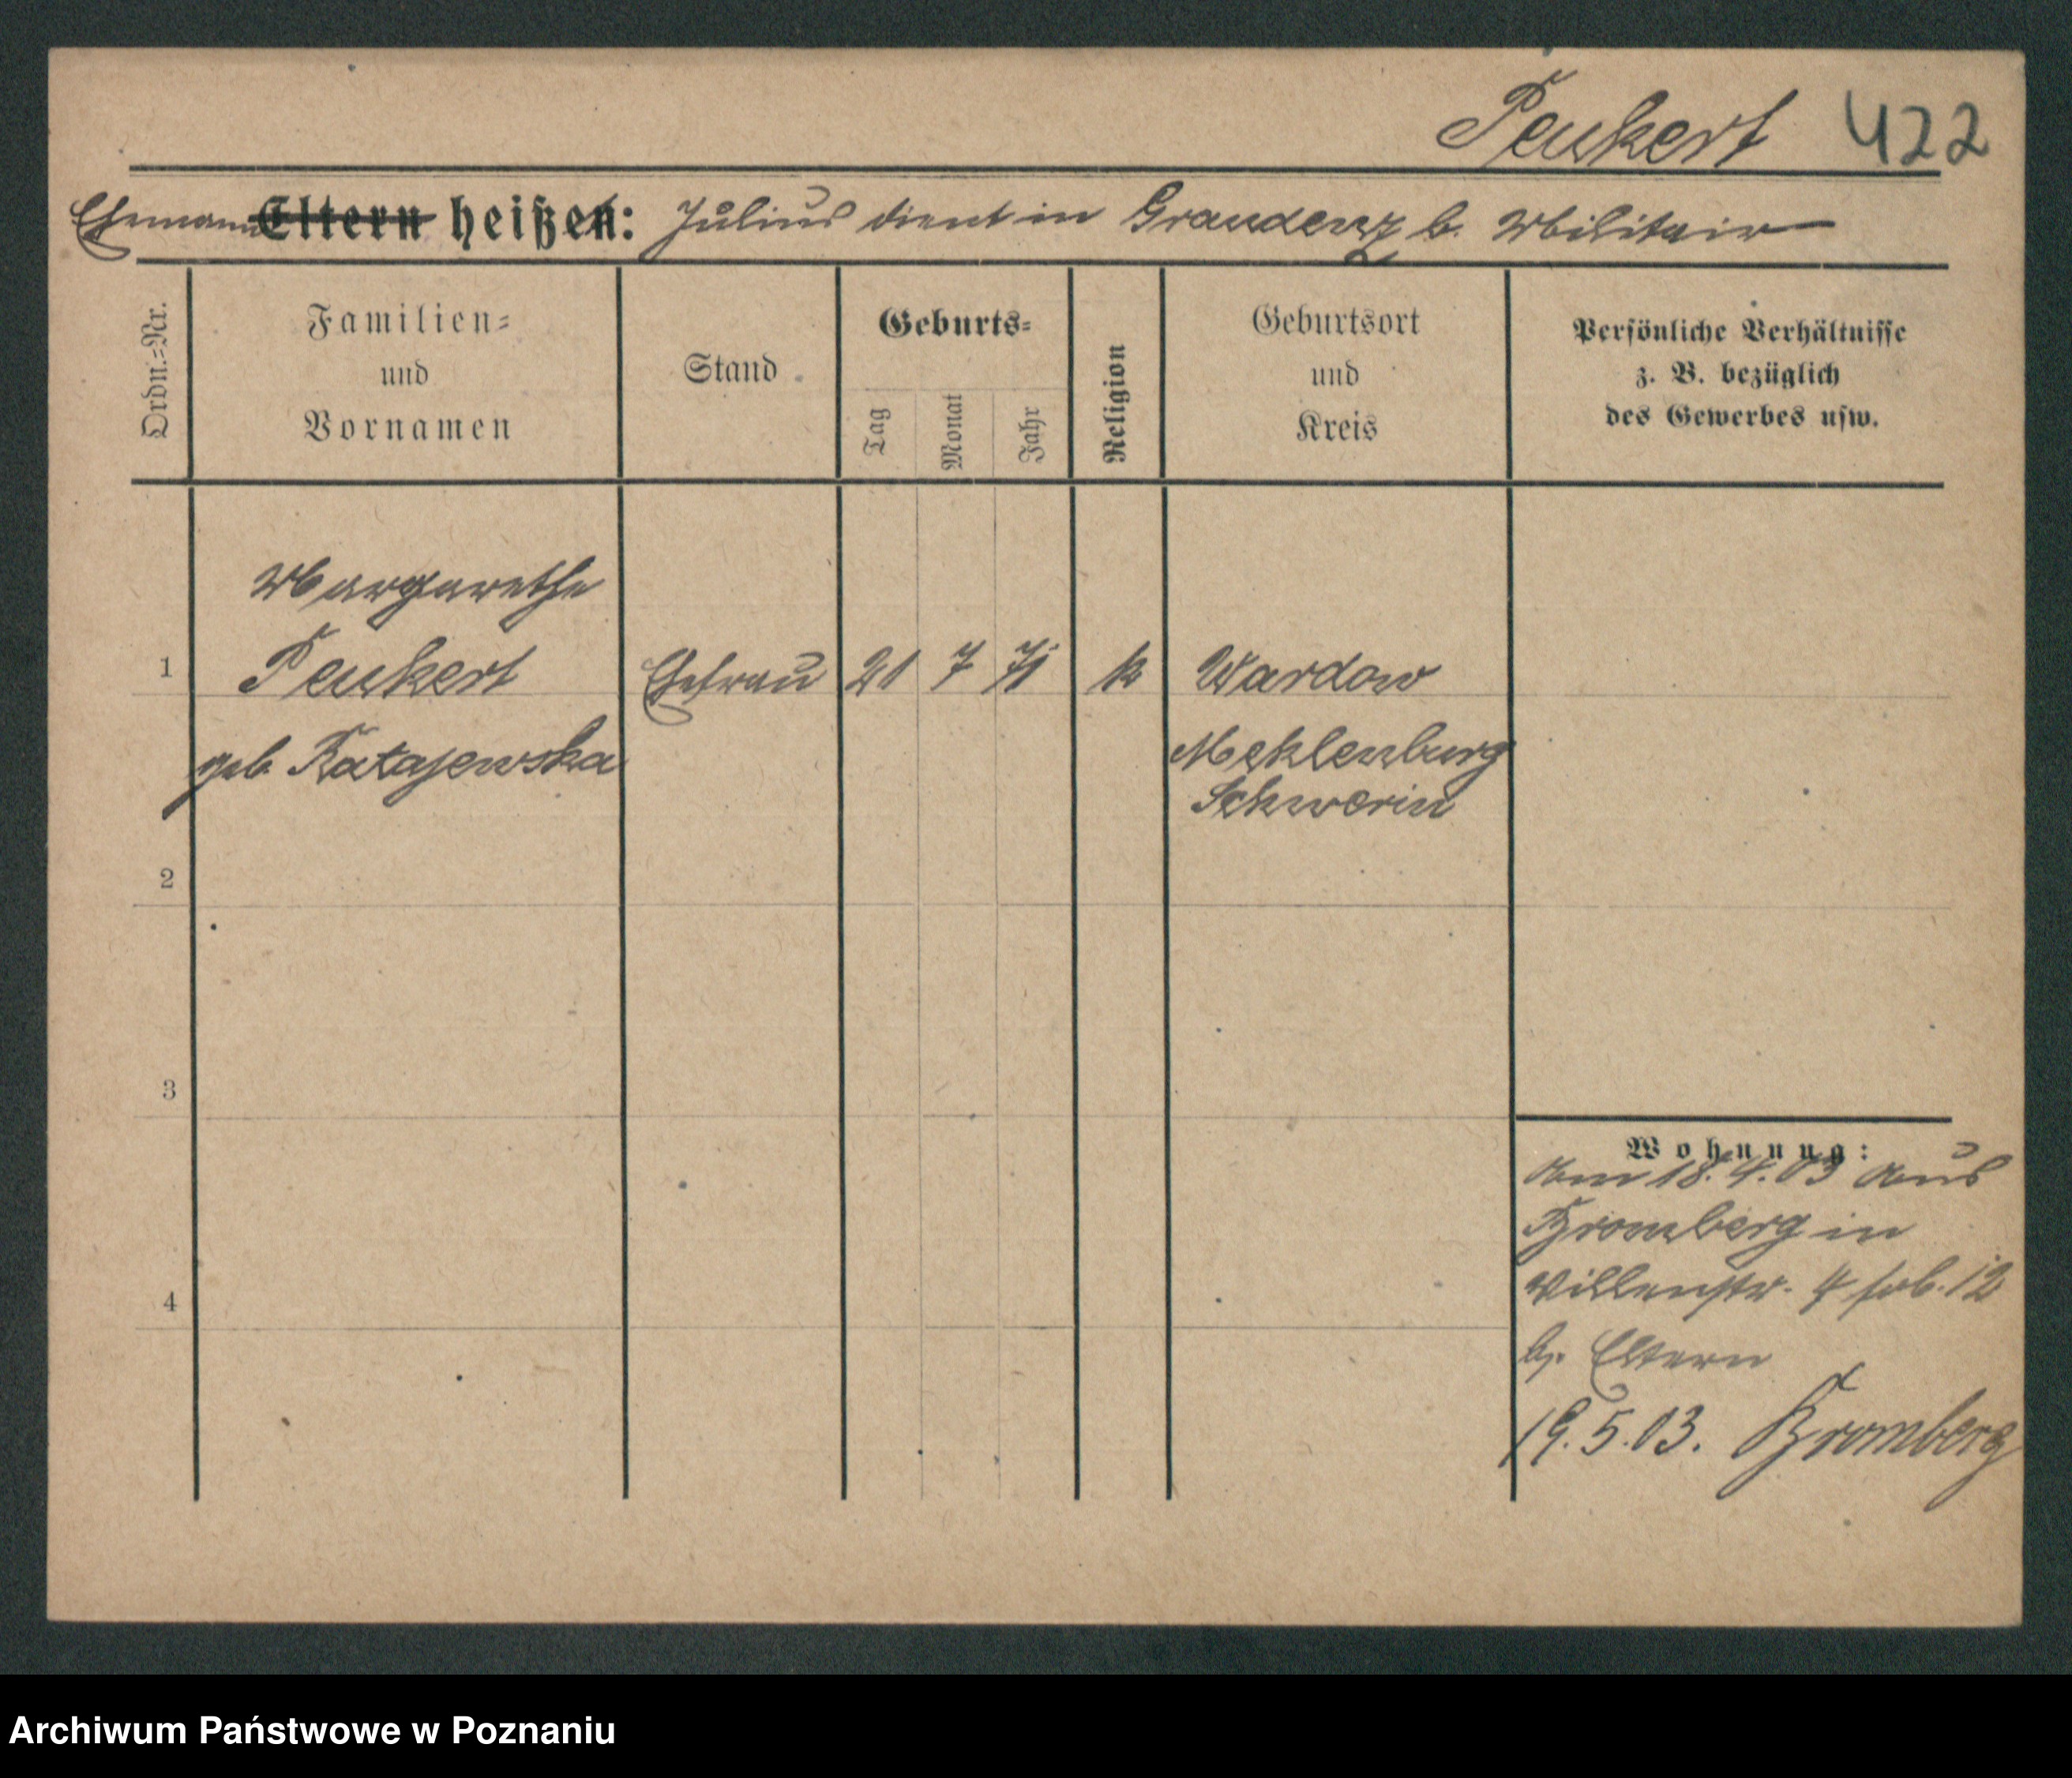 Peukert 422
Ehemann Eltern heißen: Julius dient in Graudenz b. Militair
Ordn.=Nr.
Familien=
und
Vornamen
Stand
Geburts=
Tag
Monat
Jahr
Religion
Geburtsort
und
Kreis
Persönliche Verhältnisse
z. B. bezüglich
des Gewerbes usw.
Margarethe
1 Peukert Ehefrau 21 7 71 k Wardow
geb. Ratajewska Meklenburg
Schwerin
2
3
Wohnung:
Am 18.4.03 aus
Bromberg in
4 Villenstr. 4 12
b. Eltern
19.5.03. Bromberg
Archiwum Państwowe w Poznaniu